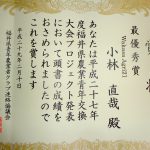 賞状
最優秀賞
Wakasa Agri21
小林 直哉 殿
あなたは平成二十七年
度福井県青年農業者交換
大会プロジェクト発表
において頭書の成績を
おさめられましたので
これを賞します
平成二十九年二月十日
福井県青年農業者クラブ連絡協議会